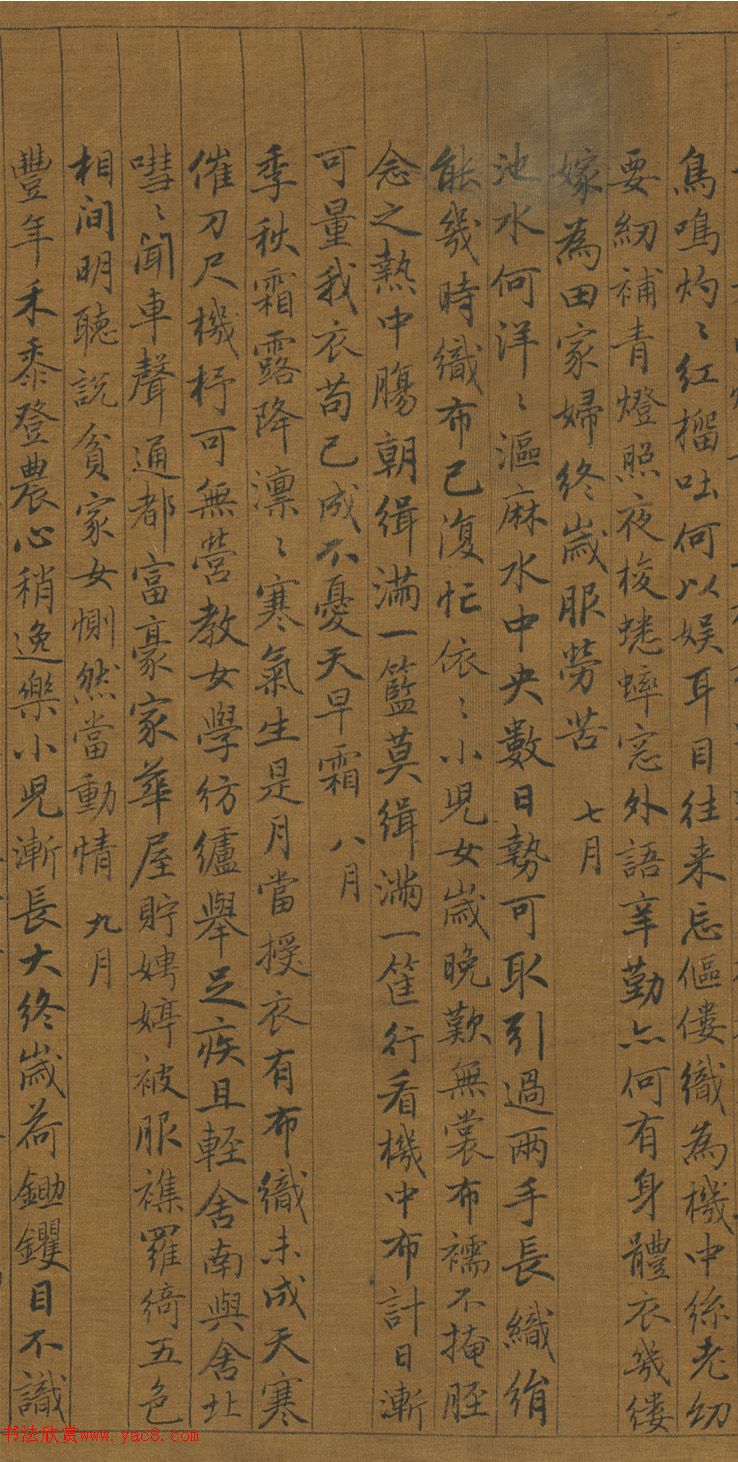 鳥鳴灼〻紅榴吐何以娱耳目往来忘傴僂織為機中絲老幼
要紉補青燈照夜梭蟋蟀窓外語辛勤亦何有身體衣幾縷
嫁為田家婦終歲服勞苦 七月
池水何洋〻漚麻水中央數日勢可取引過兩手長織絹
能幾時織布已復忙依〻小児女歲晚歎無裳布襦不掩脛
念之熱中腸朝緝滿一籃莫緝滿一筐行看機中布計日漸
可量我衣苟已成不憂天早霜 八月
季秋霜露降凛〻寒氣生是月當授衣有布織未成天寒
催刀尺機杼可無營教女學紡纑舉足疾且輕舍南與舍北
嘒〻聞車聲通都富豪家華屋貯娉婷被服襍羅綺五色
相间明聽說貧家女惻然當動情 九月
豐年禾黍登農心稍逸樂小児漸長大終歲荷鋤钁目不識
书法欣赏www.yac8.com